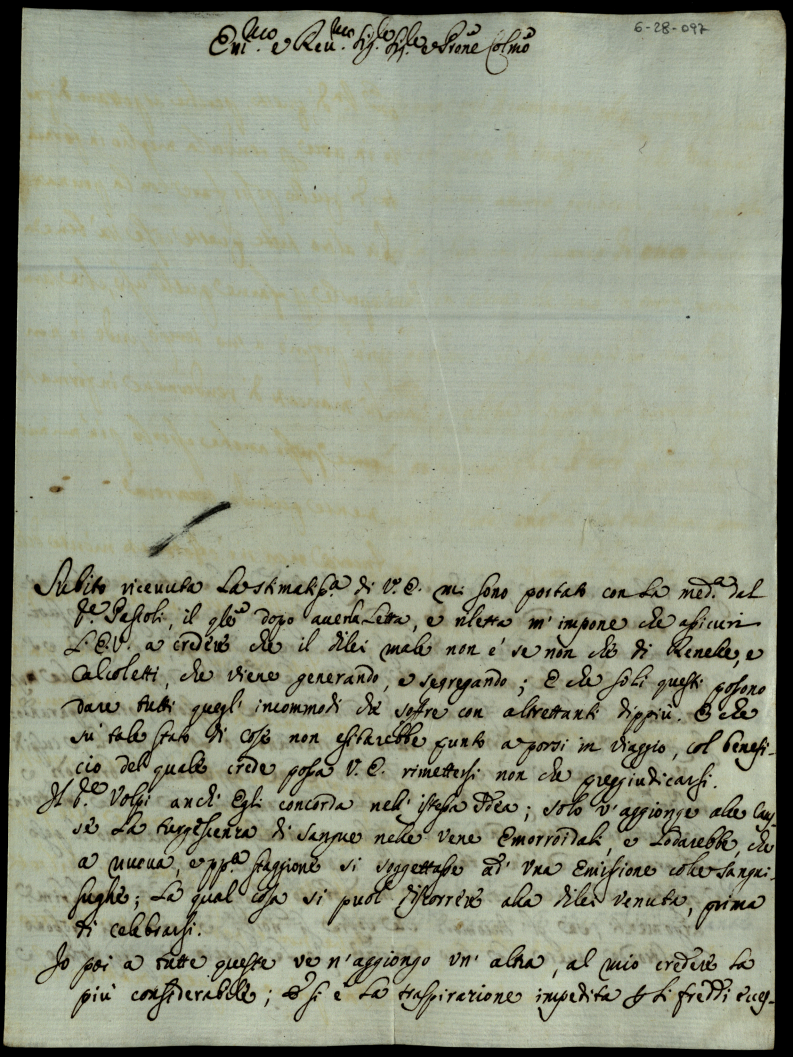 6-28-097
Em.mo e Rev.mo Sig.re Sig.re e Prone Colmo
Subito ricevuta La stimatis.a di V. E. mi sono portato con La med.a dal
S.re Pastoli, il qle dopo averla Letta, e riletta m'impone che assicuri
L'E.V. a credere che il dilei male non è se non che di Renelle, e
Calcoletti, che viene generando, e segregando; E che soli questi possono
dare tutti quegl'incommodi che soffre con altrettanti dippiù. E che
sù tale stato di cose non esitarebbe punto a porsi in viaggio, col benefi-
cio del quale crede possa V. E. rimettersi non che preggiudicarsi.
Il S.re Volpi anch'Egli concorda nell'istessa Idea; solo v'aggionge alle Cau-
se La turgescenza di sangue nelle vene Emorroidali, e Lodarebbe, che
a nuova, e pp.a staggione si soggettasse ad'una Emissione colle Sangui-
sughe; La qual cosa si puol discorrere alla dilei venuta, prima
di celebrarsi.
Io poi a tutte queste ve n'aggiongo un'altra, al mio credere La
più considerabile; e si è La traspirazione impedita Li freddi ecces-